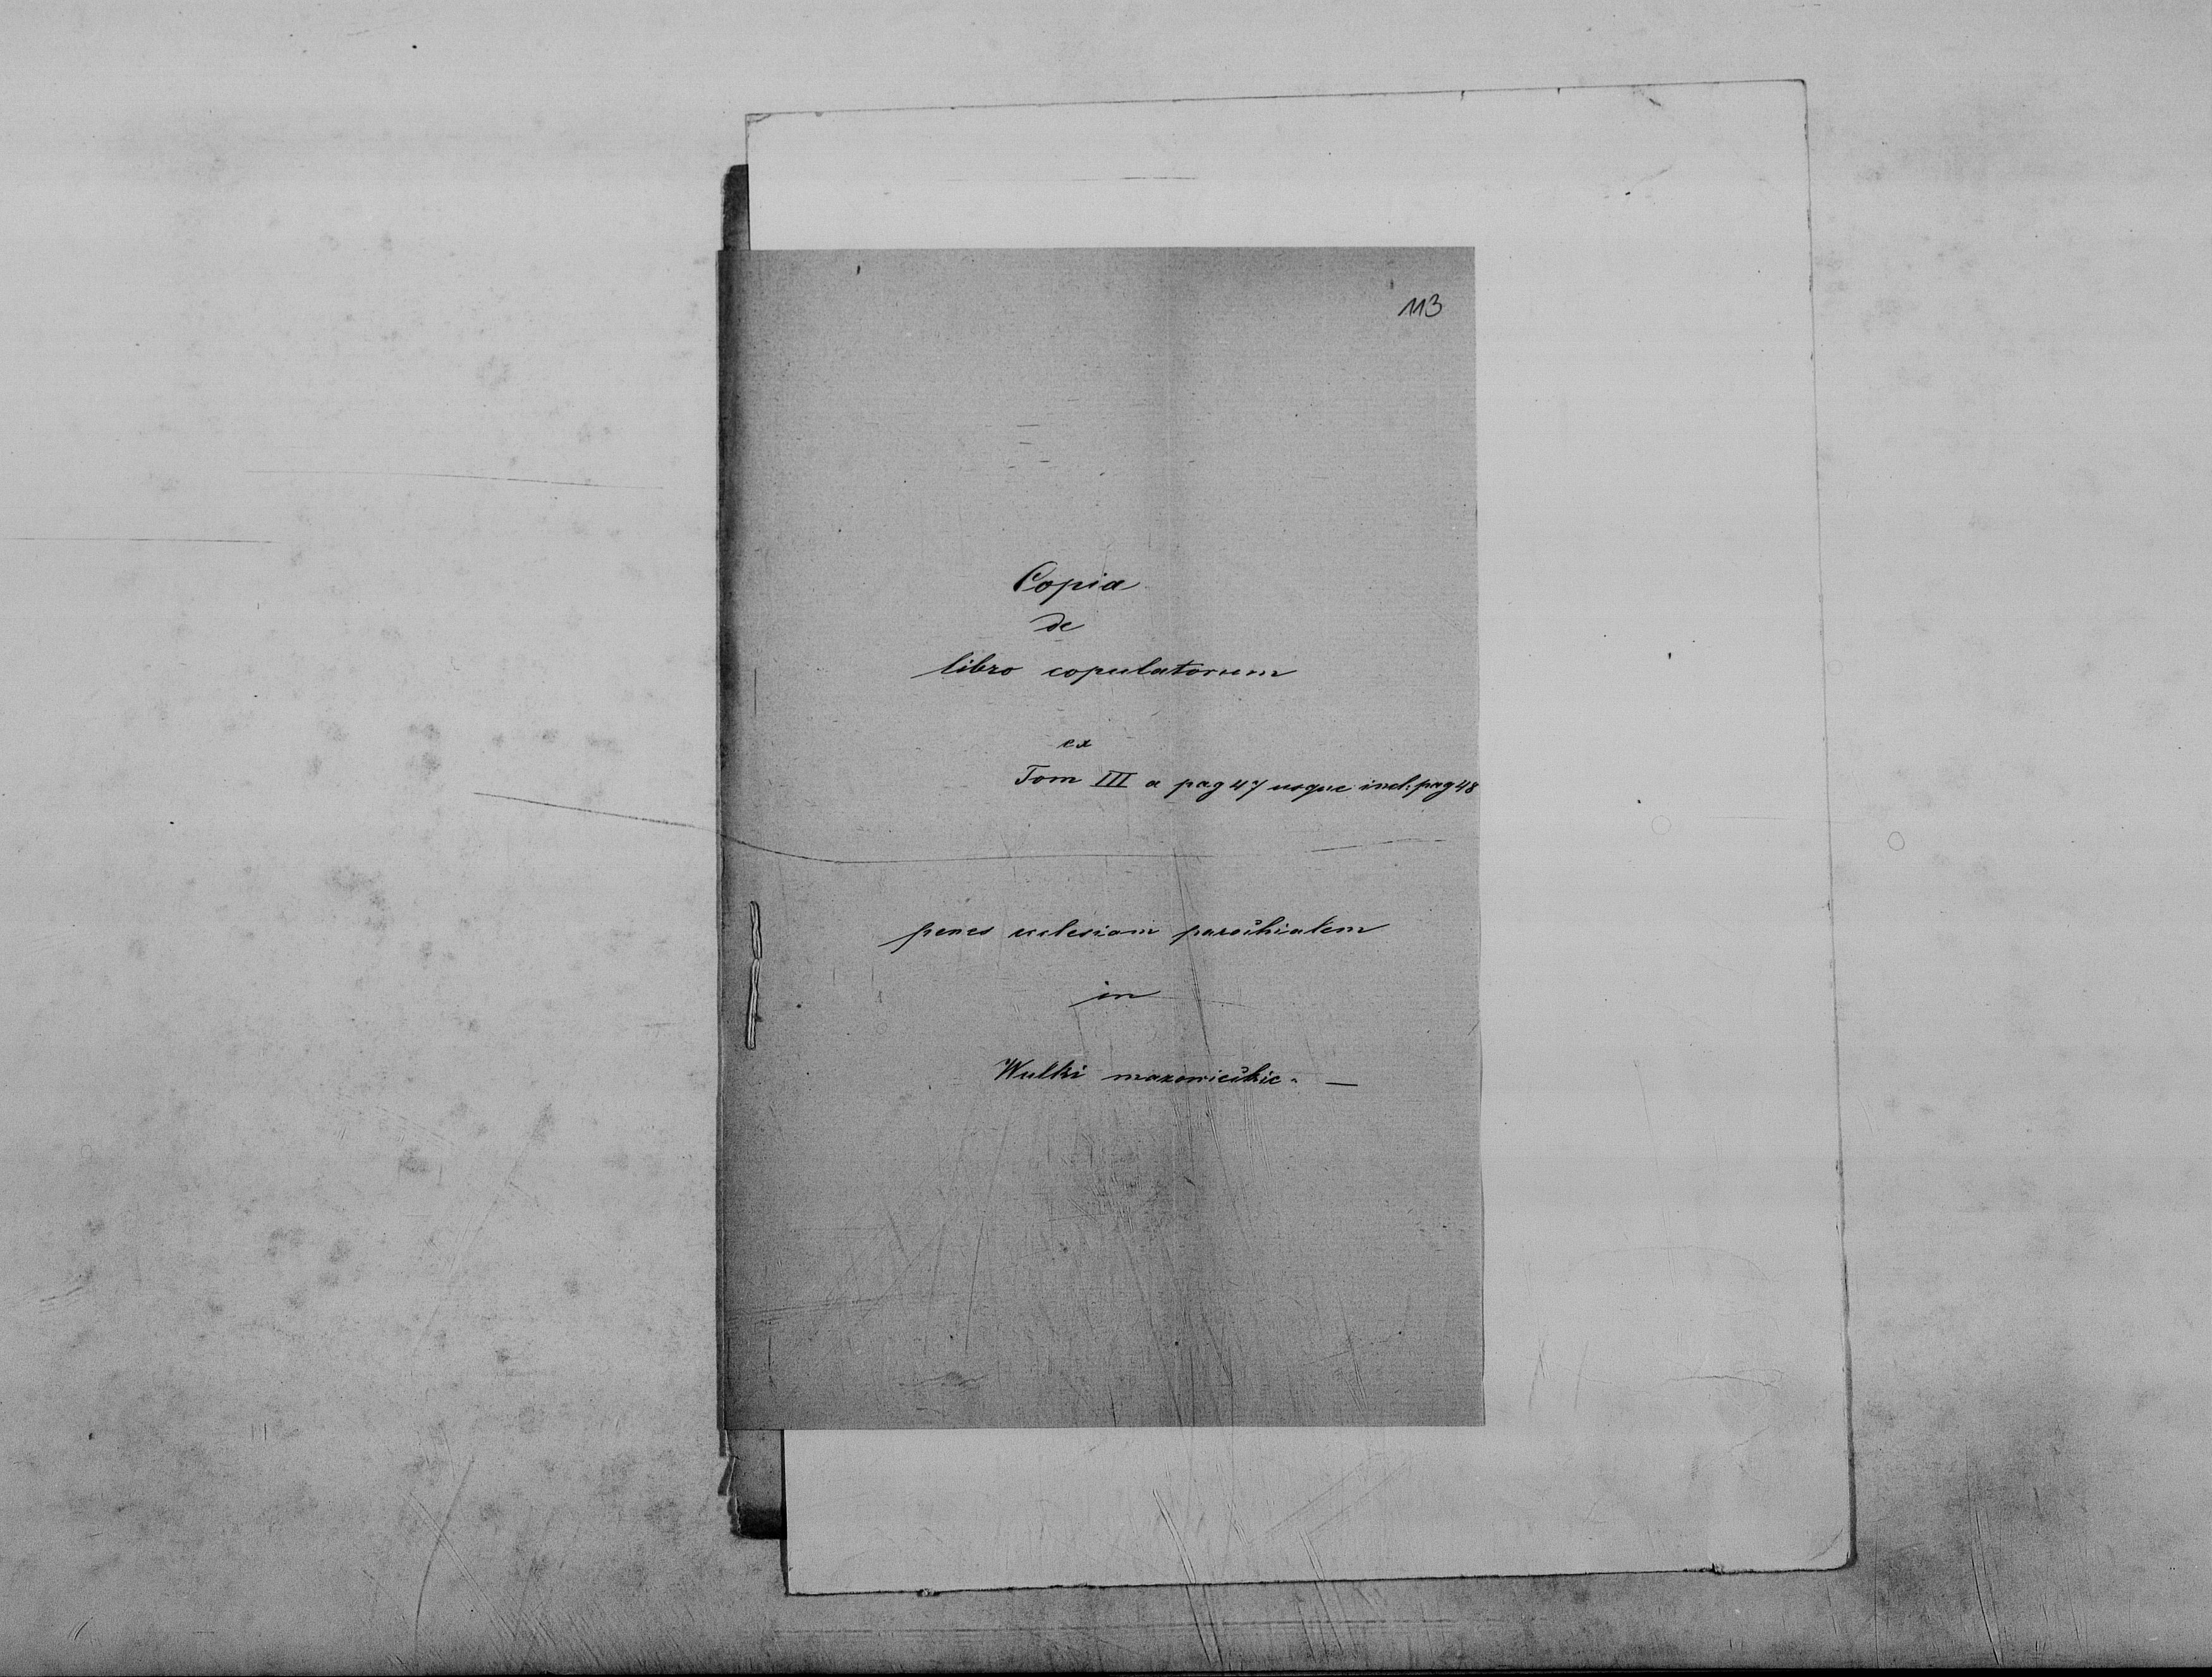 113
Copia
de
libro copulatorum
ex
Tom III a pag 47 usque incl. pag 48
penes eclesiam parochialem
in
Wulki mazowieckie. —